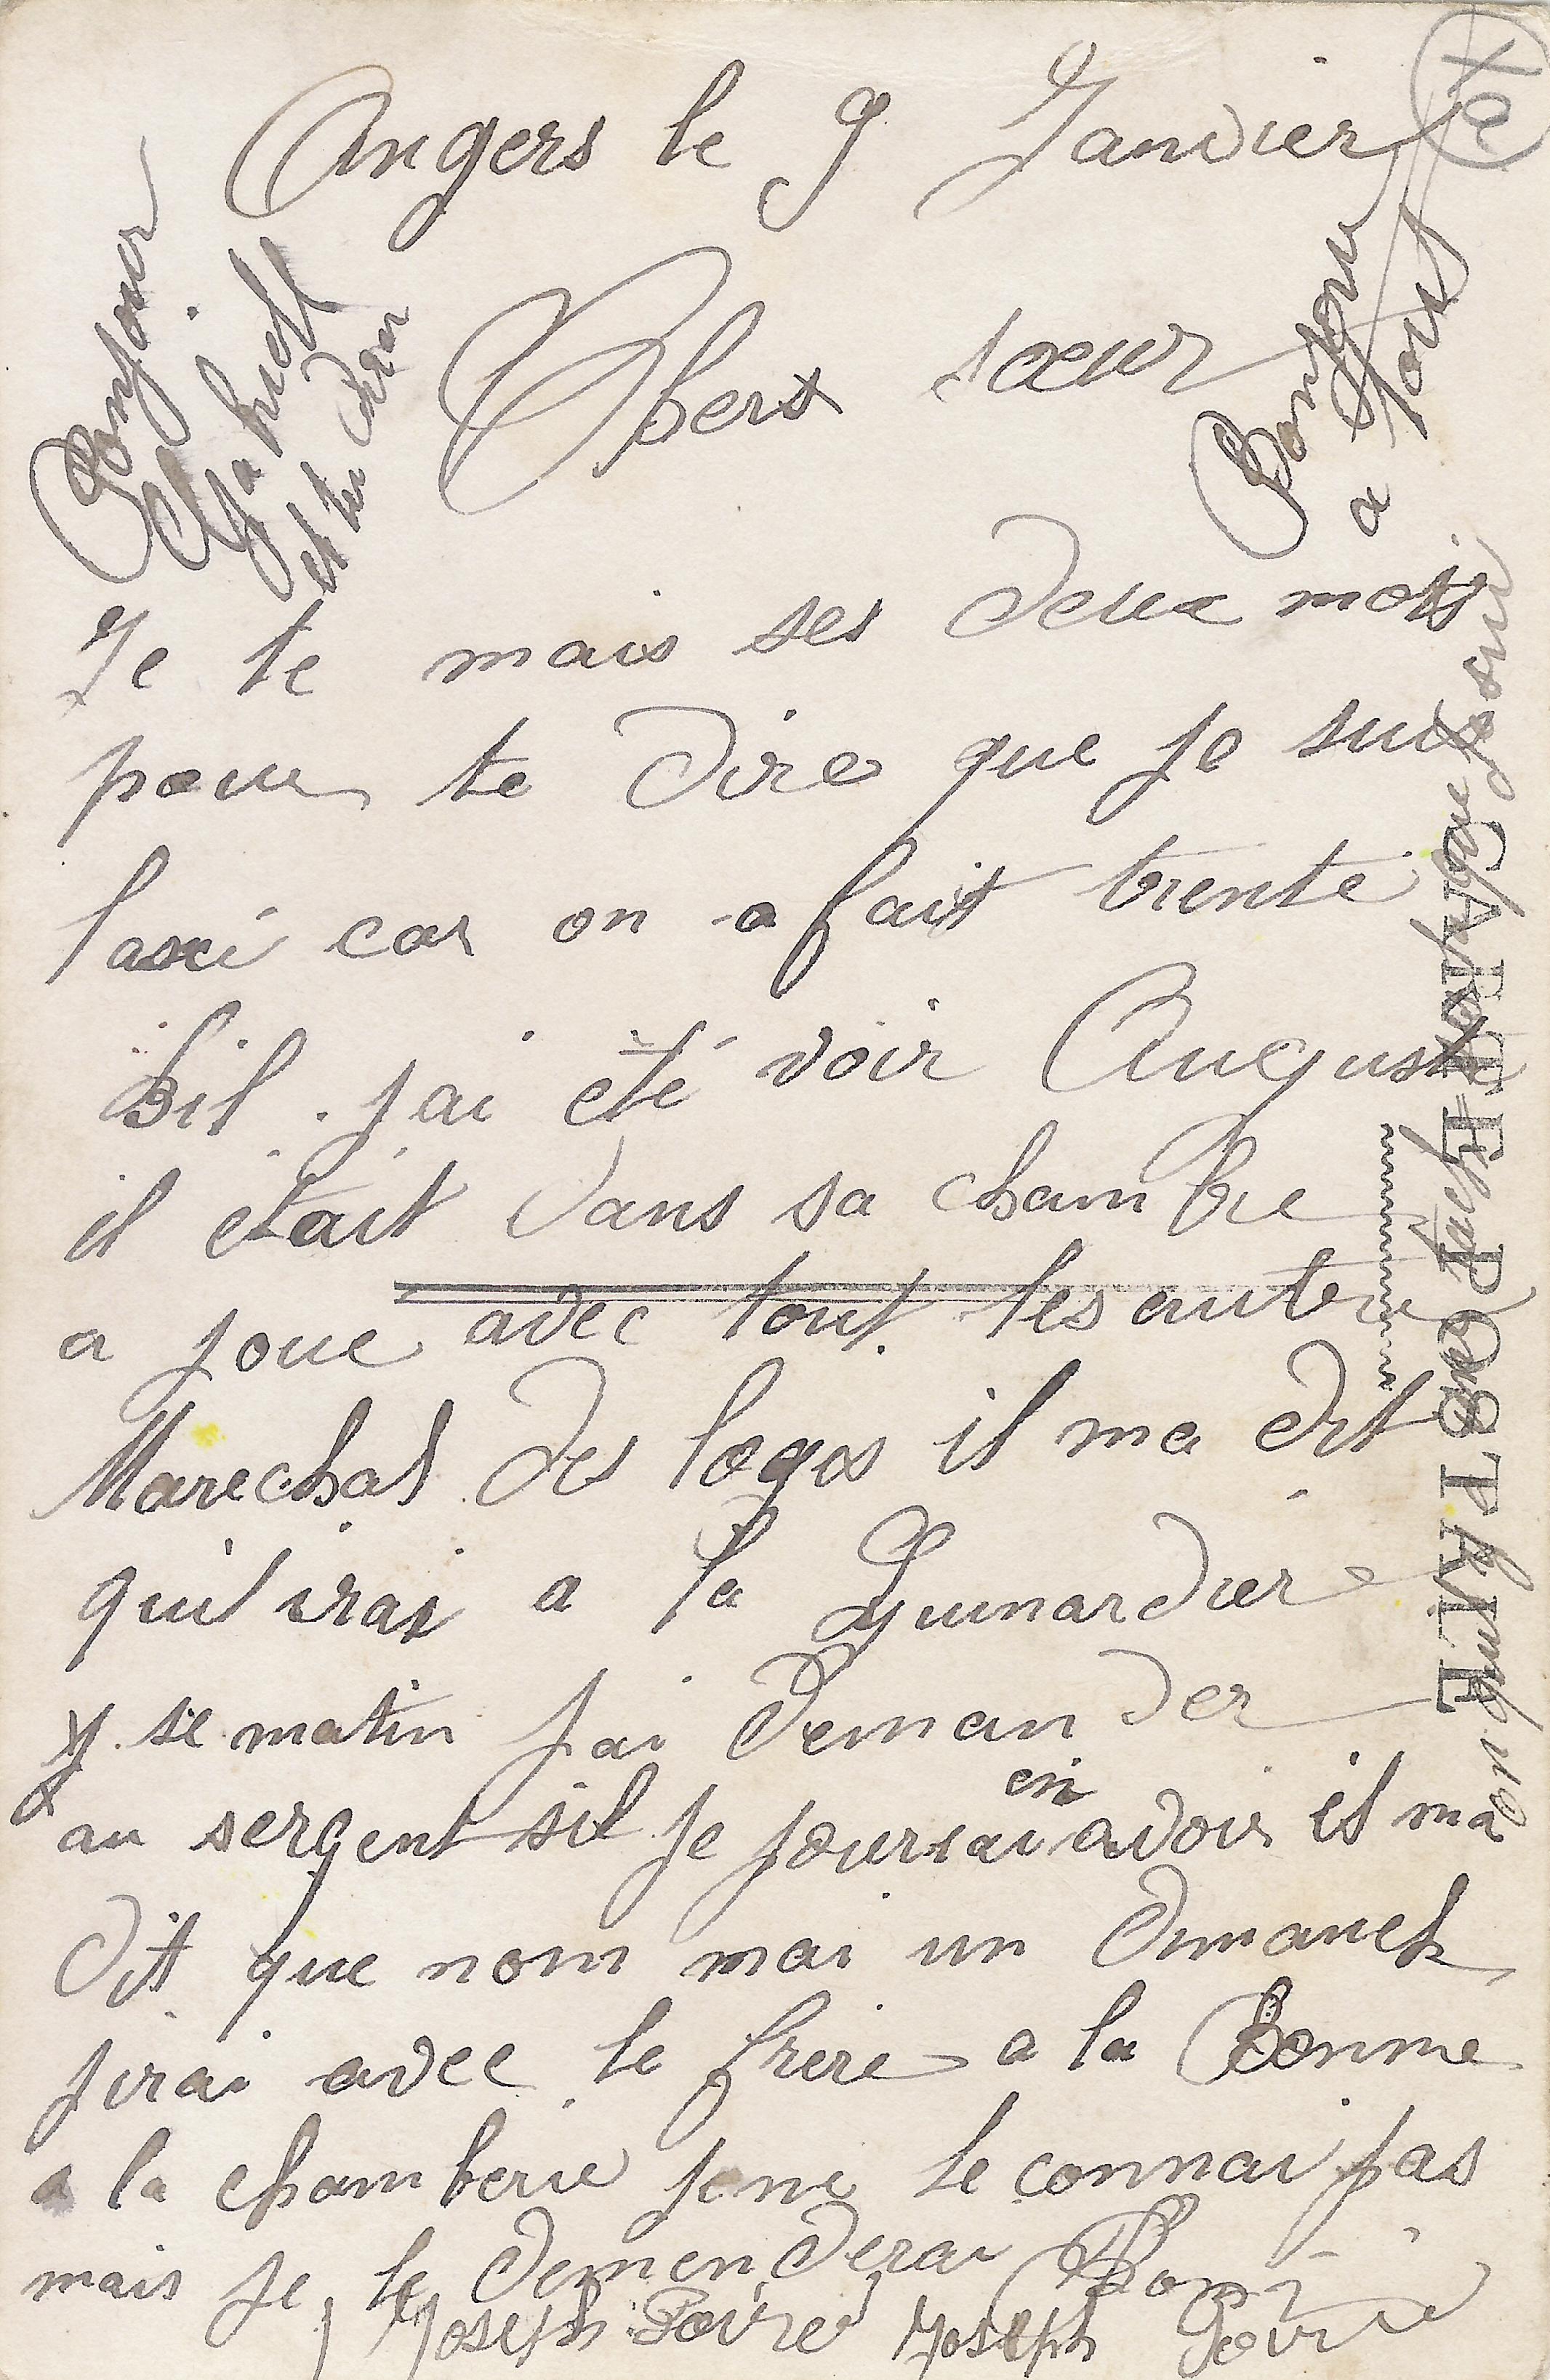 Angers le 9 Janvier
Bonjour
Gabriell
et tu
Bonjour
a tous
Chers sœur
Je te mais ses deux mots
pour te dire que je suis
lassé car on a fait trente
Kil. j'ai été voir Auguste
il était dans sa chambre
a joue avec tout les autre
Marechal des logis il ma dit
quil irai a la Guinardiere
se matin j'ai demander
au sergent sil je pourrai en avoir il ma
dit que nom mai un dimanch
jirai avec le frere a la Bonne
a la chamberie je ne le connai pas
mais je le demenderai
Joseph Poiré Joseph Poiré
CARTE POSTALE